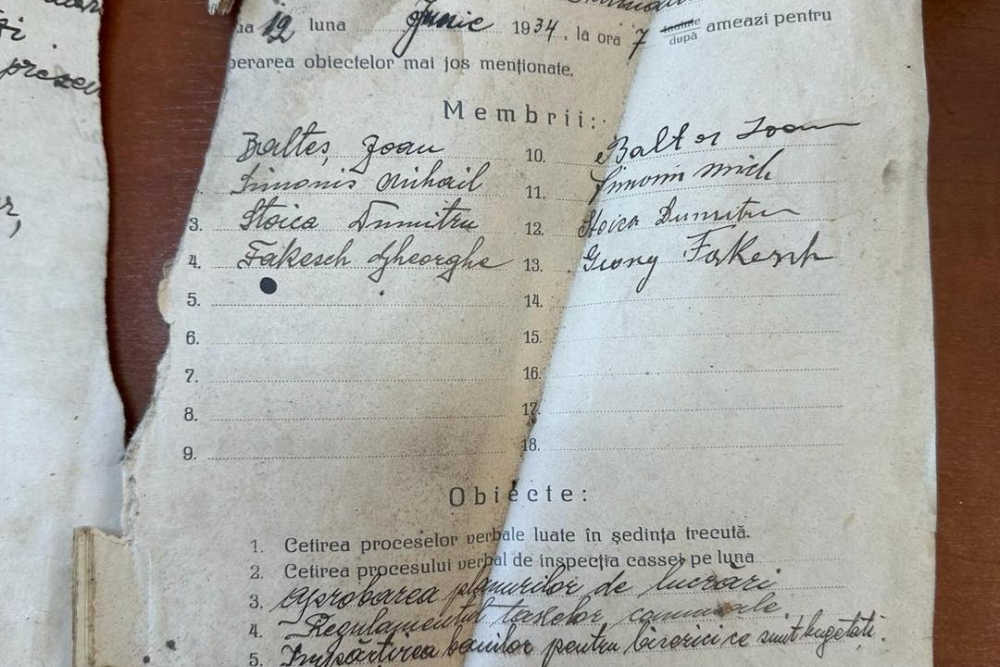 prezen
12 luna Junie 1934, la ora 7 înainte după ameazi pentru
perarea obiectelor mai jos menționate.
Membrii:
Baltes, Joan 10. Baltes Joan
Simonis Mihail 11. Simonis Mich
3. Stoica Dumitru 12. Stoica Dumitru
4. Fakesch Gheorghe 13. Georg Fakesch
5. 14.
6. 15.
7. 16.
8. 17.
9. 18.
Obiecte:
1. Cetirea proceselor verbale luate în ședința trecută.
2. Cetirea procesului verbal de inspecția cassei pe luna
3. Aprobarea planurilor de lucrări
4. Regulamentul taxelor comunale.
5. Impărtirea banilor pentru biserici ce sunt bugetati.